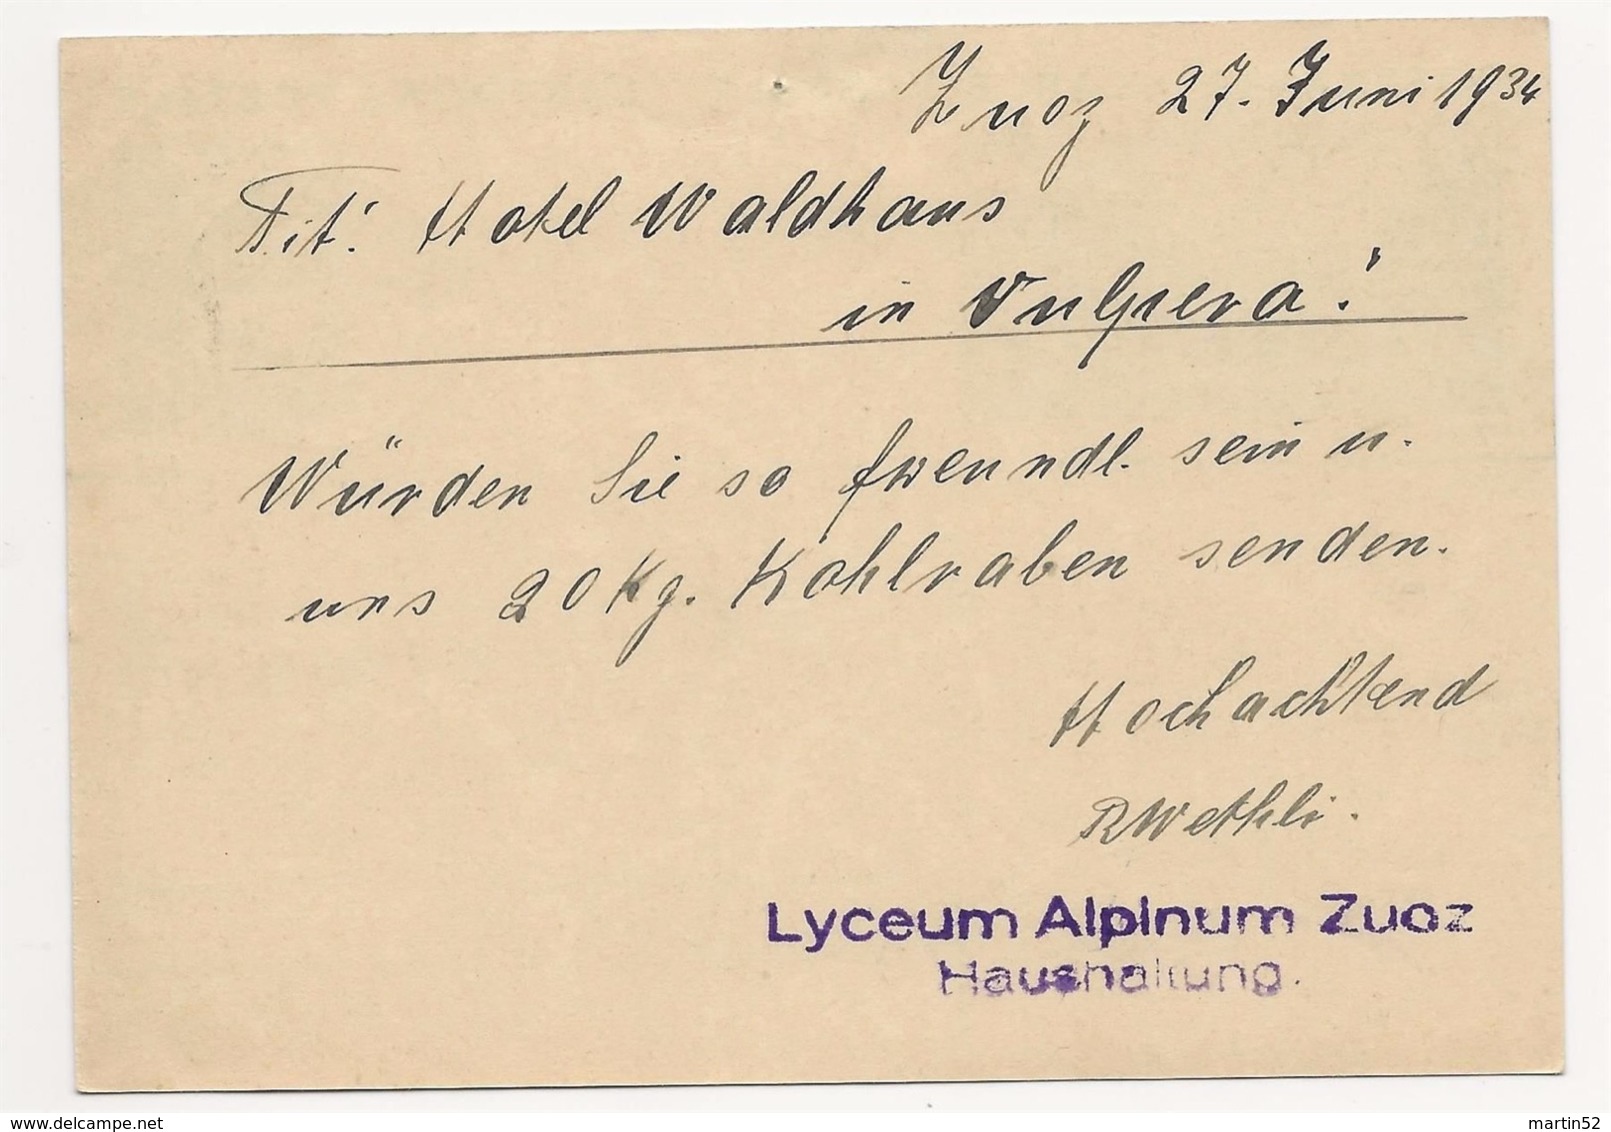 Zuoz 27. Juni 1934
Tit. Hotel Waldhaus
in Vulpera!
Würden Sie so freundl. sein u.
uns 20 Kg. Kohlraben senden.
Hochachtend
RWethli.
Lyceum Alpinum Zuoz
Haushaltung.
martin52